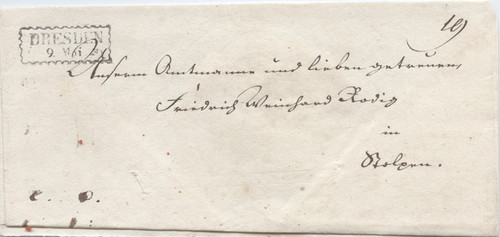 DRESDEN
9. Mai
19
Unserm Amtmanne und lieben getreuen,
Friedrich Weinhard Rodig
in
Stolpen.
e. o.